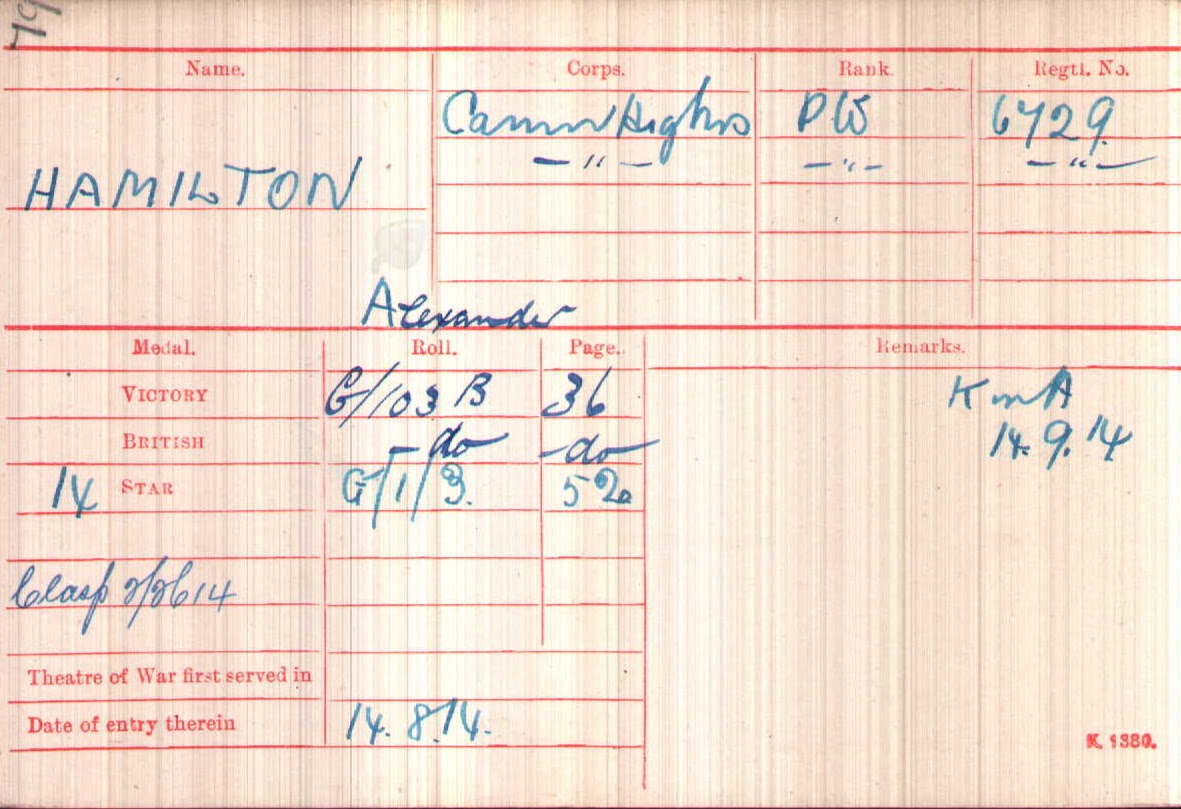 79
Name. Corps. Rank. Regtl. No.
HAMILTON Camn Highrs PW 6729
—"— —"— —"—
Alexander
Medal. Roll. Page. Remarks.
VICTORY G/103 B 36 K in A
BRITISH — do — do — 14.9.14
14 STAR G/1/3. 52
Clasp
Theatre of War first served in
Date of entry therein 14.8.14.
K. 1380.